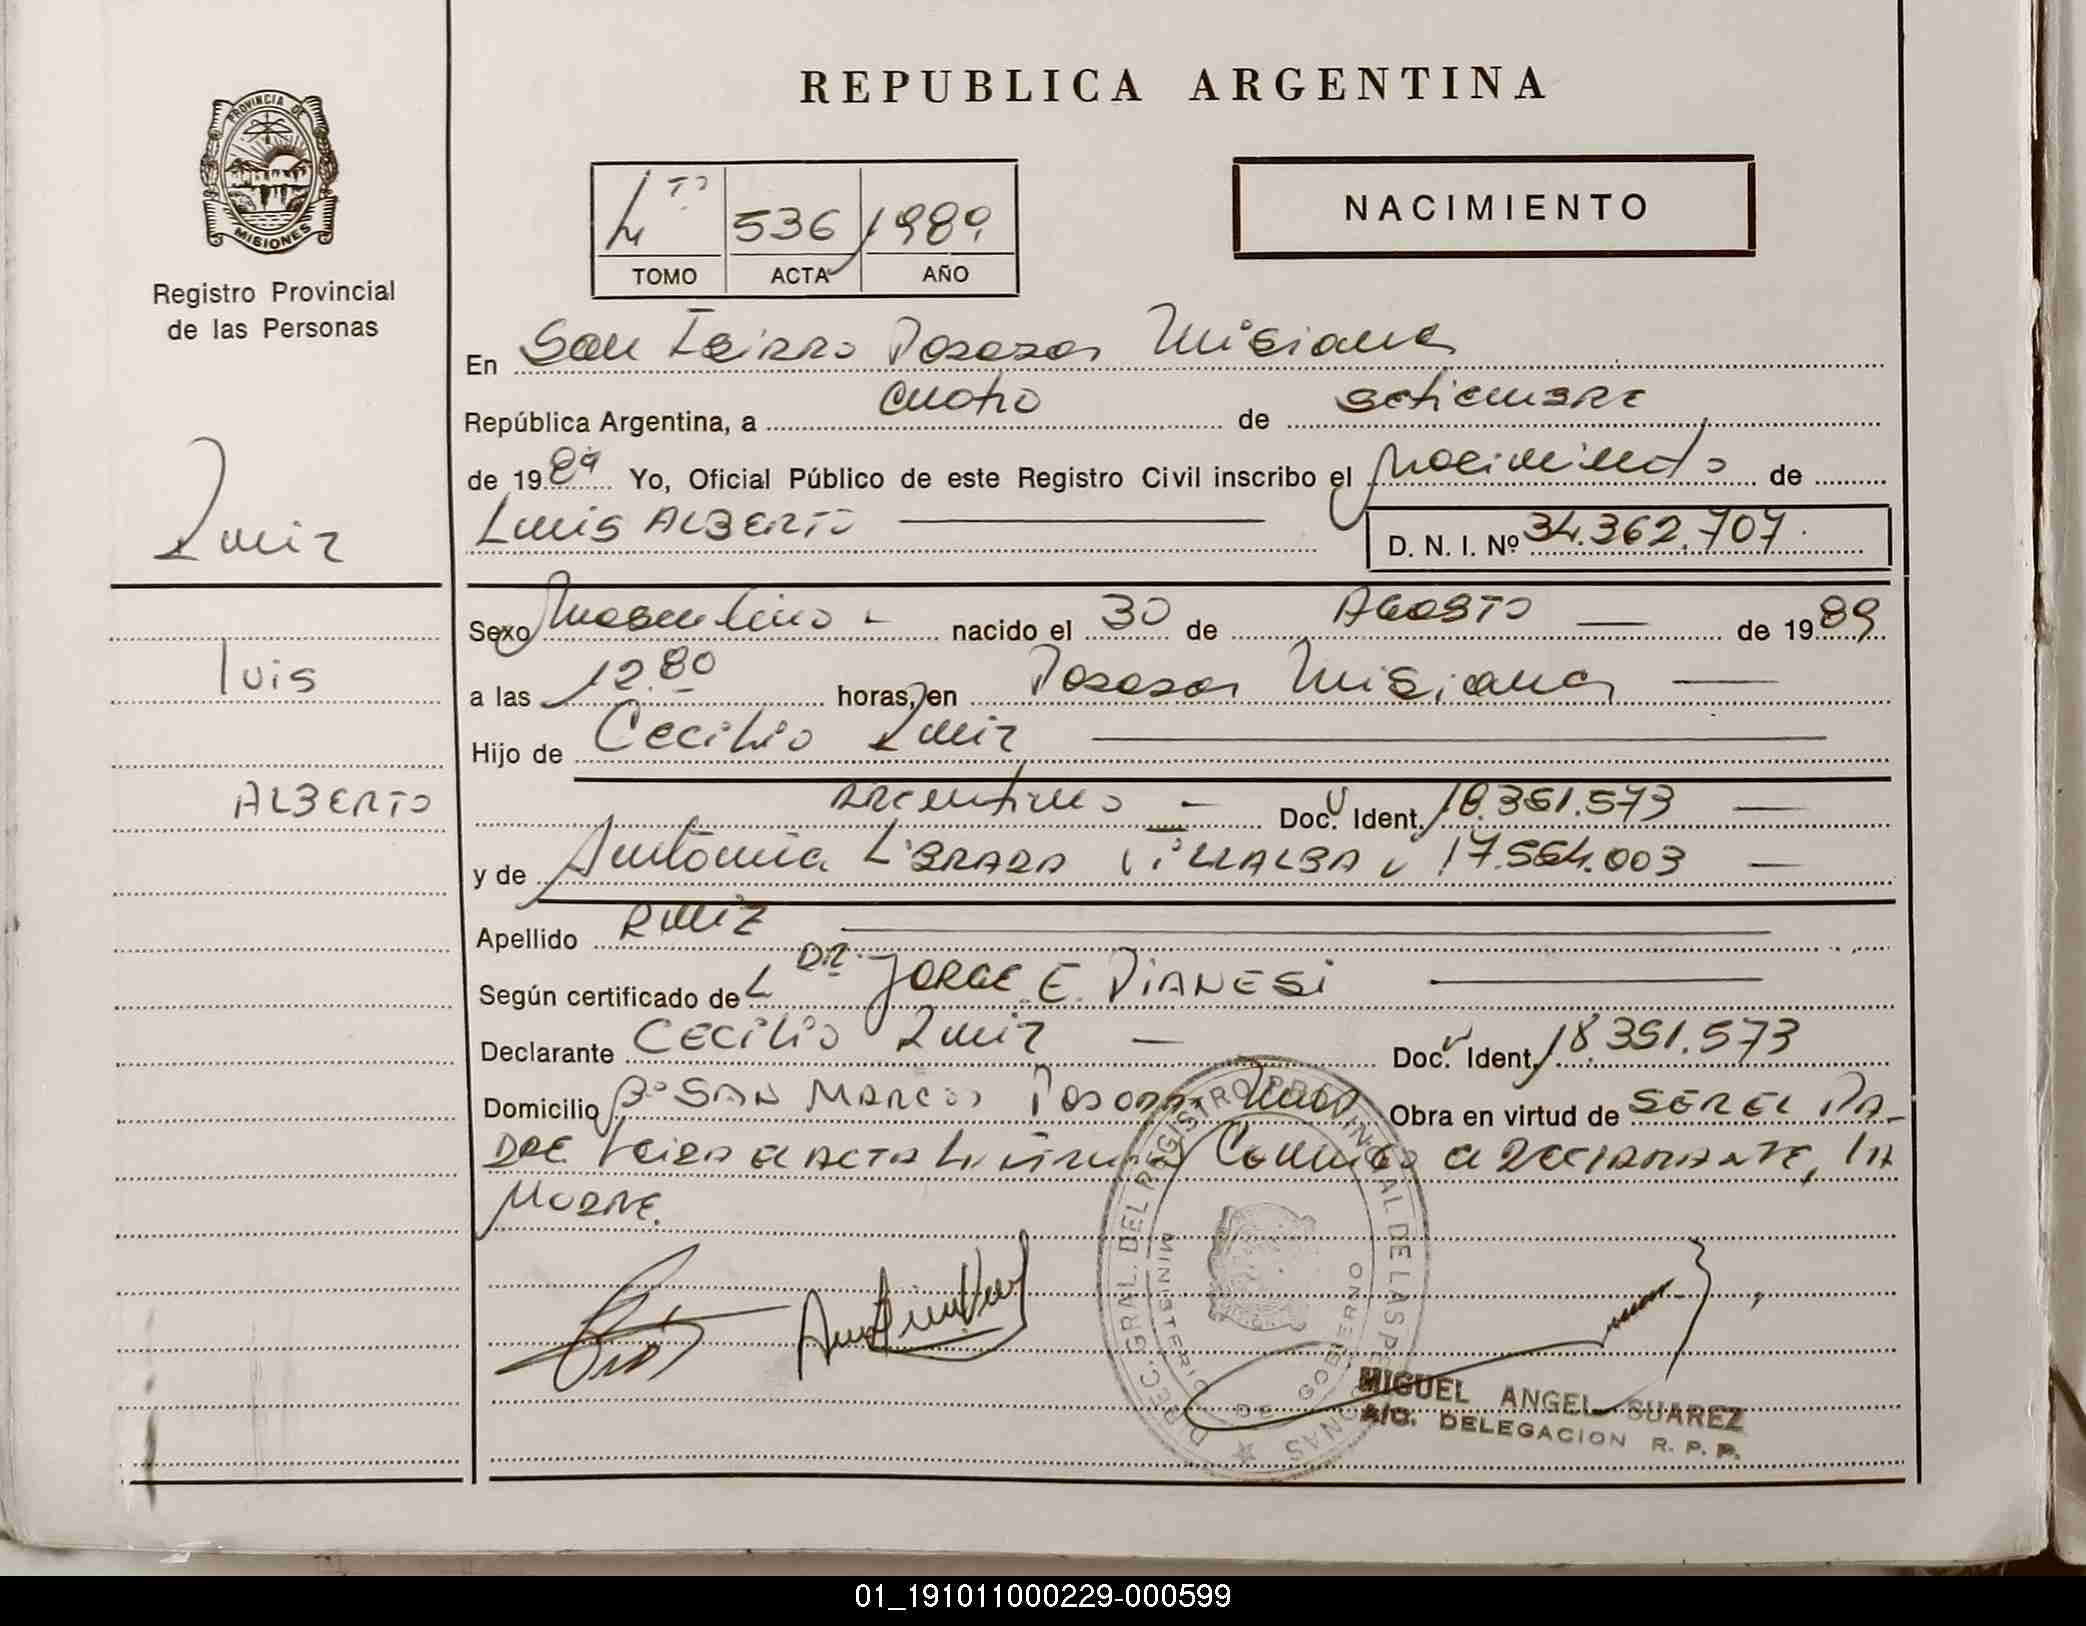 REPUBLICA ARGENTINA
PROVINCIA DE
MISIONES
Registro Provincial
de las Personas
4to
536
1989
TOMO
ACTA
AÑO
NACIMIENTO
En San Isidro Posadas Misiones
República Argentina, a cuatro de setiembre
de 1989 Yo, Oficial Público de este Registro Civil inscribo el nacimiento de
Luis ALBERTO
D. N. I. Nº 34.362.707
Ruiz
Luis
ALBERTO
Sexo Masculino nacido el 30 de AGOSTO de 1989
a las horas, en Posadas Misiones
Hijo de Cecilio Ruiz
argentino Doc. Ident. 18.351.573
y de Antonia LIBRADA VILLALBA 17.564.003
Apellido Ruiz
Según certificado del DR. JORGE E. DIANESI
Declarante CECILIO Ruiz Doc. Ident. 18.351.573
Domicilio Bº SAN MARCOS Posadas Obra en virtud de SER EL PA-
DRE Leida el ACTA la firma Conmigo el DECLARANTE, LA
MADRE.
DIREC. GRAL. DEL REGISTRO PROVINCIAL DE LAS PERSONAS
MINISTERIO DE GOBIERNO
MIGUEL ANGEL SUAREZ
A/C. DELEGACION R. P. P.
01_191011000229-000599